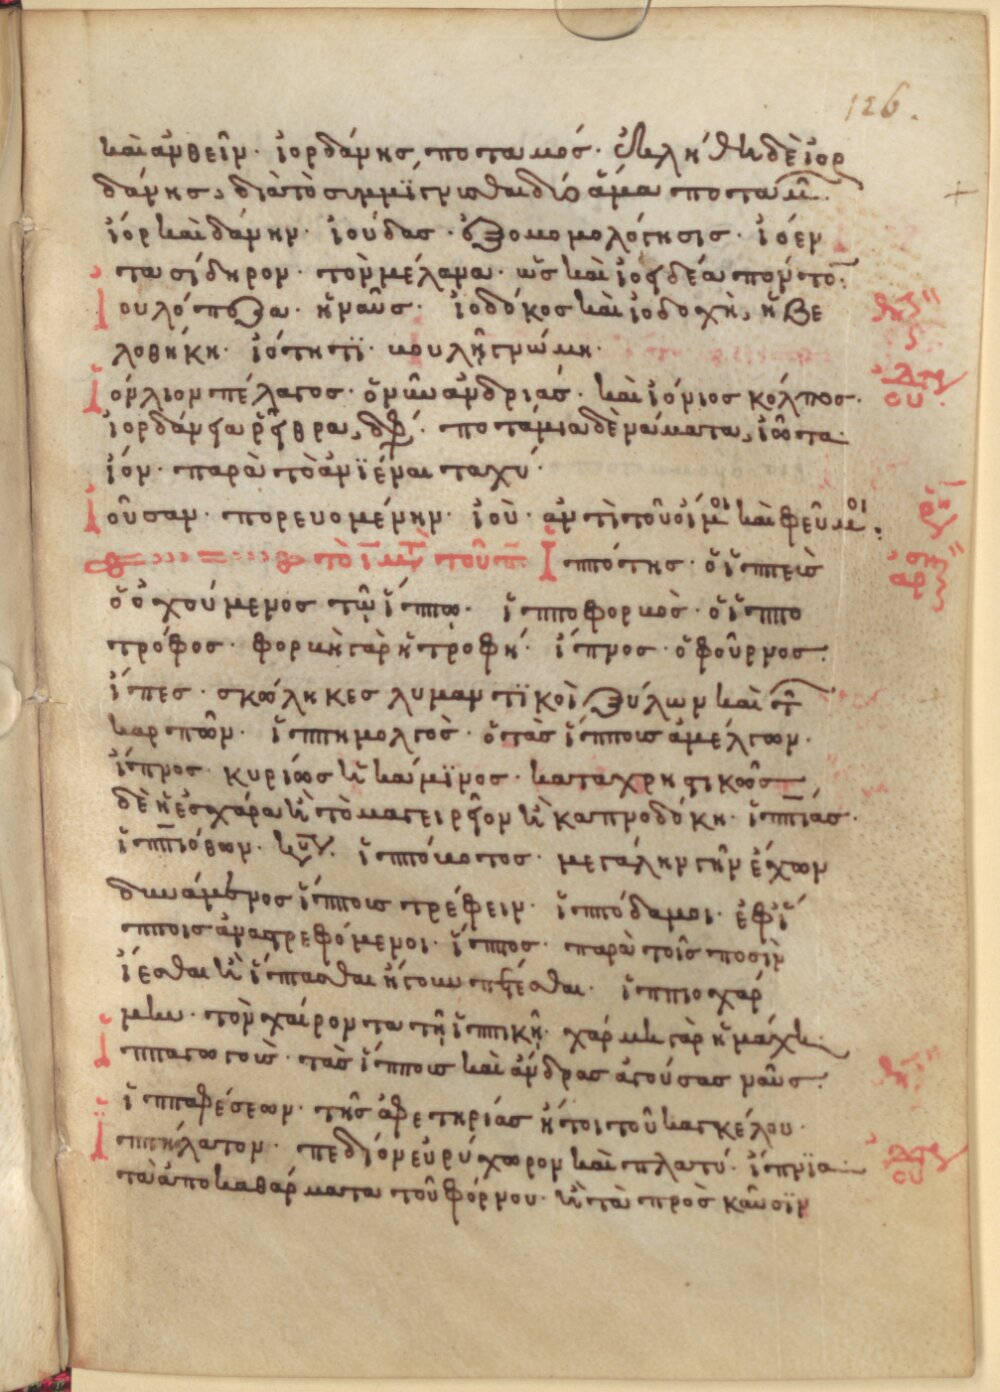 126.
καὶ ἀνθεῖν· ἰορδάνης, ποταμός· ἐκλήθη δὲ ἰορ
δάνης, διὰ τὸ συμμίγνυσθαι δύο ἅμα ποταμ
ἰόρ καὶ δάνην· ἰούδας· ἐξομομολόγησις· ἰόεν
τα σίδηρον· τὸν μέλανα· ὡς καὶ ἰοειδέα πόντο
ουλόπεζα· ἡ ναῦς· ἰοδόκος καὶ ἰοδοχὴ, ἡ βε
λοθήκη· ἰότητι· βουλῇ γνώμη·
Ἰόνλιον πέλαγος· ὄνομα ἀνδριάς· καὶ ἰόνιος κόλπος·
ἰορδάνεια ῥεῖθρα, ποτάμια δὲ νάματα, ἰῶτα
ἰόν· παρὰ τὸ ἀνϊέναι ταχύ·
Ἰοῦσαν· πορευομένην· ἰοὺ· ἀντὶ τοῦ οἴμοι καὶ φεῦ μοι·
τὸ ῑ μετὰ τοῦ π Ἱππότης· ὁ ἱππεὶς
ὁ ὀχούμενος τῷ ἵππω· ἱπποφορβὸς· ὁ ἱππο
τρόφος· φορβὴ γὰρ ἡ τροφή· ἰπνος· ὁ φοῦρνος·
ἶπες· σκώληκες λυμαντϊκοὶ ξύλων καὶ τῶν
καρπῶν· ἱππημολγὸς· ὁ τὰς ἵππους ἀμέλγων·
ἰπνος· κυρίως ἡ κάμϊνος· καταχρηστικῶς
δὲ ἡ ἐσχάρα καὶ τὸ μαγειρεῖον καὶ καπνοδόκη· ἱππιάς·
ἱππιόθων· ἱππόβοτος· μεγάλην γῆν ἔχων
δυνάμενος ἵππους τρέφειν· ἱππόδαμοι· ἐφ ἵ
πποις ἀνατρεφόμενοι· ἵππος· παρὰ τοῖς ποσὶν
ἵεσθαι καὶ ἵπτασθαι ἤγουν πέτεσθαι· ἱππιοχάρ
μην· τὸν χαίροντα τῇ ἱππικῇ· χάρμη γὰρ ἡ μάχη·
ππαγωγοὺς· τὰς ἵππους καὶ ἄνδρας ἀγούσας ναῦς·
ἱππαφέσεων· τῆς ἀφετηρίας ἤτοι τοῦ καγκέλου·
Ἱππήλατον· πεδίον εὐρύχωρον καὶ πλατύ· ἴπνϊα
τὰ ἀποκαθάρματα τοῦ φόρνου· καὶ τὰ πρὸς καῦσϊν